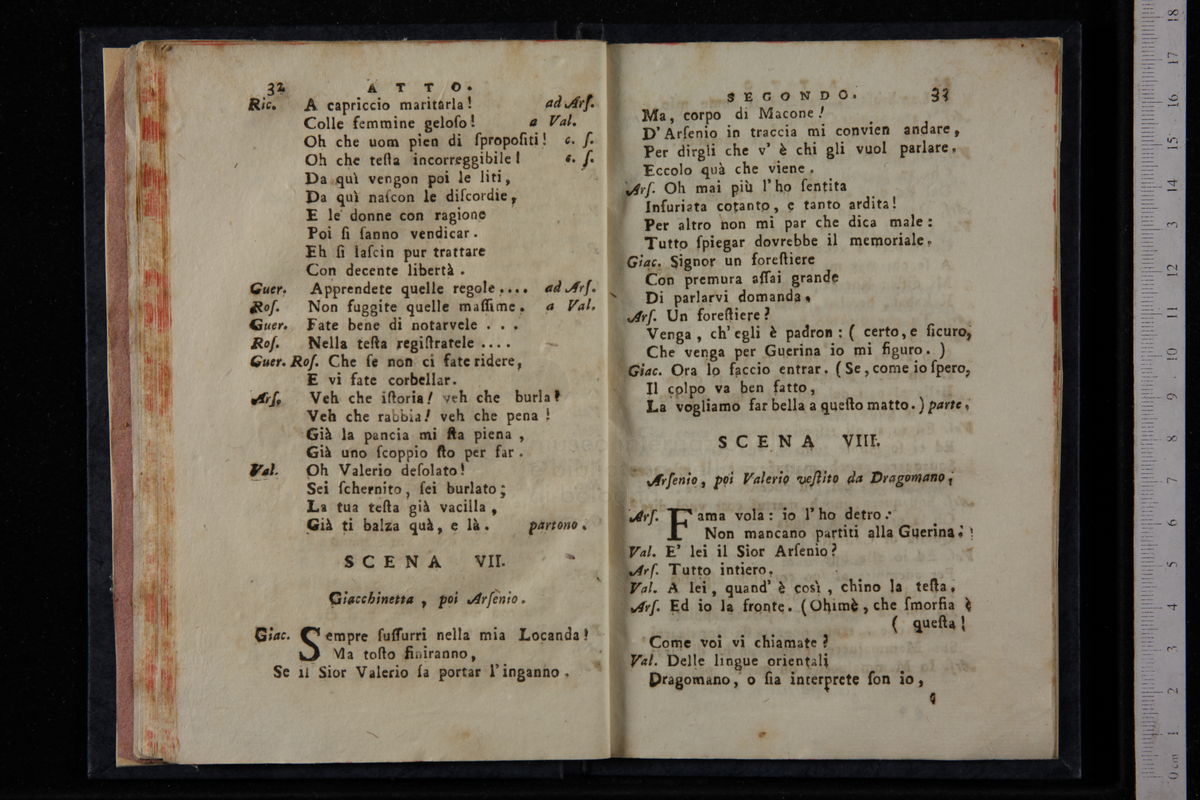 32 ATTO.
Ric. A capriccio maritarla! ad Arſ.
Colle femmine geloſo! a Val.
Oh che uom pien di ſpropoſiti! c. ſ.
Oh che teſta incorreggibile! c. ſ.
Da quì vengon poi le liti,
Da quì naſcon le diſcordie,
E le donne con ragione
Poi ſi ſanno vendicar.
Eh ſi laſcin pur trattare
Con decente libertà.
Guer. Apprendete quelle regole.... ad Arſ.
Roſ. Non fuggite quelle maſſime. a Val.
Guer. Fate bene di notarvele . . .
Roſ. Nella teſta regiſtratele ....
Guer. Roſ. Che ſe non ci fate ridere,
E vi fate corbellar.
Arſ. Veh che iſtoria! veh che burla!
Veh che rabbia! veh che pena!
Già la pancia mi ſta piena,
Già uno ſcoppio ſto per far.
Val. Oh Valerio deſolato!
Sei ſchernito, ſei burlato;
La tua teſta già vacilla,
Già ti balza quà, e là. partono.
SCENA VII.
Giacchinetta, poi Arſenio.
Giac. Sempre ſuſſurri nella mia Locanda!
Ma toſto finiranno,
Se il Sior Valerio ſa portar l'inganno.
SECONDO. 33
Ma, corpo di Macone!
D'Arſenio in traccia mi convien andare,
Per dirgli che v'è chi gli vuol parlare.
Eccolo quà che viene.
Arſ. Oh mai più l'ho ſentita
Infuriata cotanto, e tanto ardita!
Per altro non mi par che dica male:
Tutto ſpiegar dovrebbe il memoriale.
Giac. Signor un foreſtiere
Con premura aſſai grande
Di parlarvi domanda.
Arſ. Un foreſtiere?
Venga, ch'egli è padron: (certo, e ſicuro,
Che venga per Guerina io mi figuro.)
Giac. Ora lo faccio entrar. (Se, come io ſpero,
Il colpo va ben fatto,
La vogliamo far bella a queſto matto.) parte.
SCENA VIII.
Arſenio, poi Valerio veſtito da Dragomano.
Arſ. Fama vola: io l'ho detro:
Non mancano partiti alla Guerina.
Val. E' lei il Sior Arſenio?
Arſ. Tutto intiero.
Val. A lei, quand'è così, chino la teſta.
Arſ. Ed io la fronte. (Ohimè, che ſmorfia è
( queſta!
Come voi vi chiamate?
Val. Delle lingue orientali
Dragomano, o ſia interprete ſon io,
0 cm 1 2 3 4 5 6 7 8 9 10 11 12 13 14 15 16 17 18